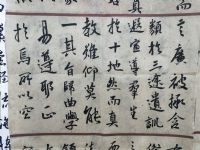 言廣被拯含
類於三途遺訓
遐宣導群生
於十地然而真
教難仰莫能
一其旨歸曲學
易遵耶正
於焉所以空